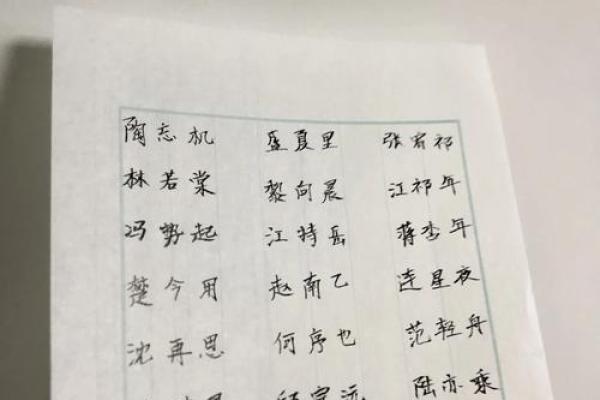 陶志机 盛夏里 张宥祁
林若棠 黎向晨 江祁年
冯势起 江特岳 蒋李年
楚今用 赵南乙 连星夜
沈再思 何序也 范轻舟
陆亦乘